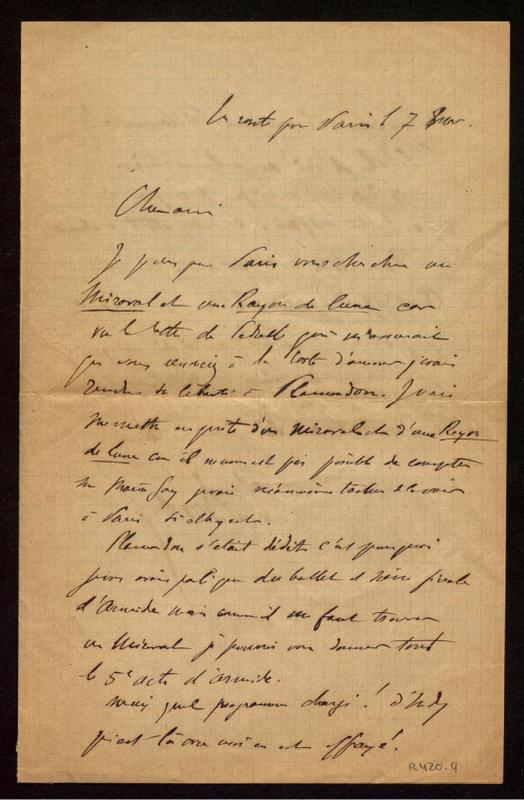 En route pour Paris le 7 
Cher ami
Je pars pour Paris vous chercher un
Miraval et une Rayon de lune car
vu la lettre de Pedrell qui m'annonçait
que vous à la Corte d'amour j'avais
rendu sa liberté à Plamondon. Je vais
me mettre en quête d'un Miraval et d'une Rayon
de lune car il ne m'est pas possible de compter
sur je vais moi-même tacher de le voir
à Paris
Plamondon s'était dédit c'est pourquoi
je vous avais parlé que du ballet et scène finale
d'Armide mais comme il me faut trouver
un Miraval je pourrai vous donner tout
le 5e acte d'Armide.
Mais quel programme chargé! d'Indy
qui est là avec moi en est effrayé!
R420.9